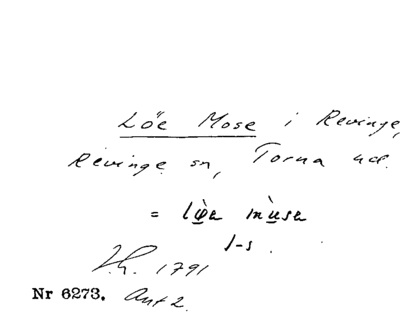 Löe Mose i Revinge,
Revinge sn, Torna hd.
= lø̀a mùsa
1791
Nr 6273. Ant 2.